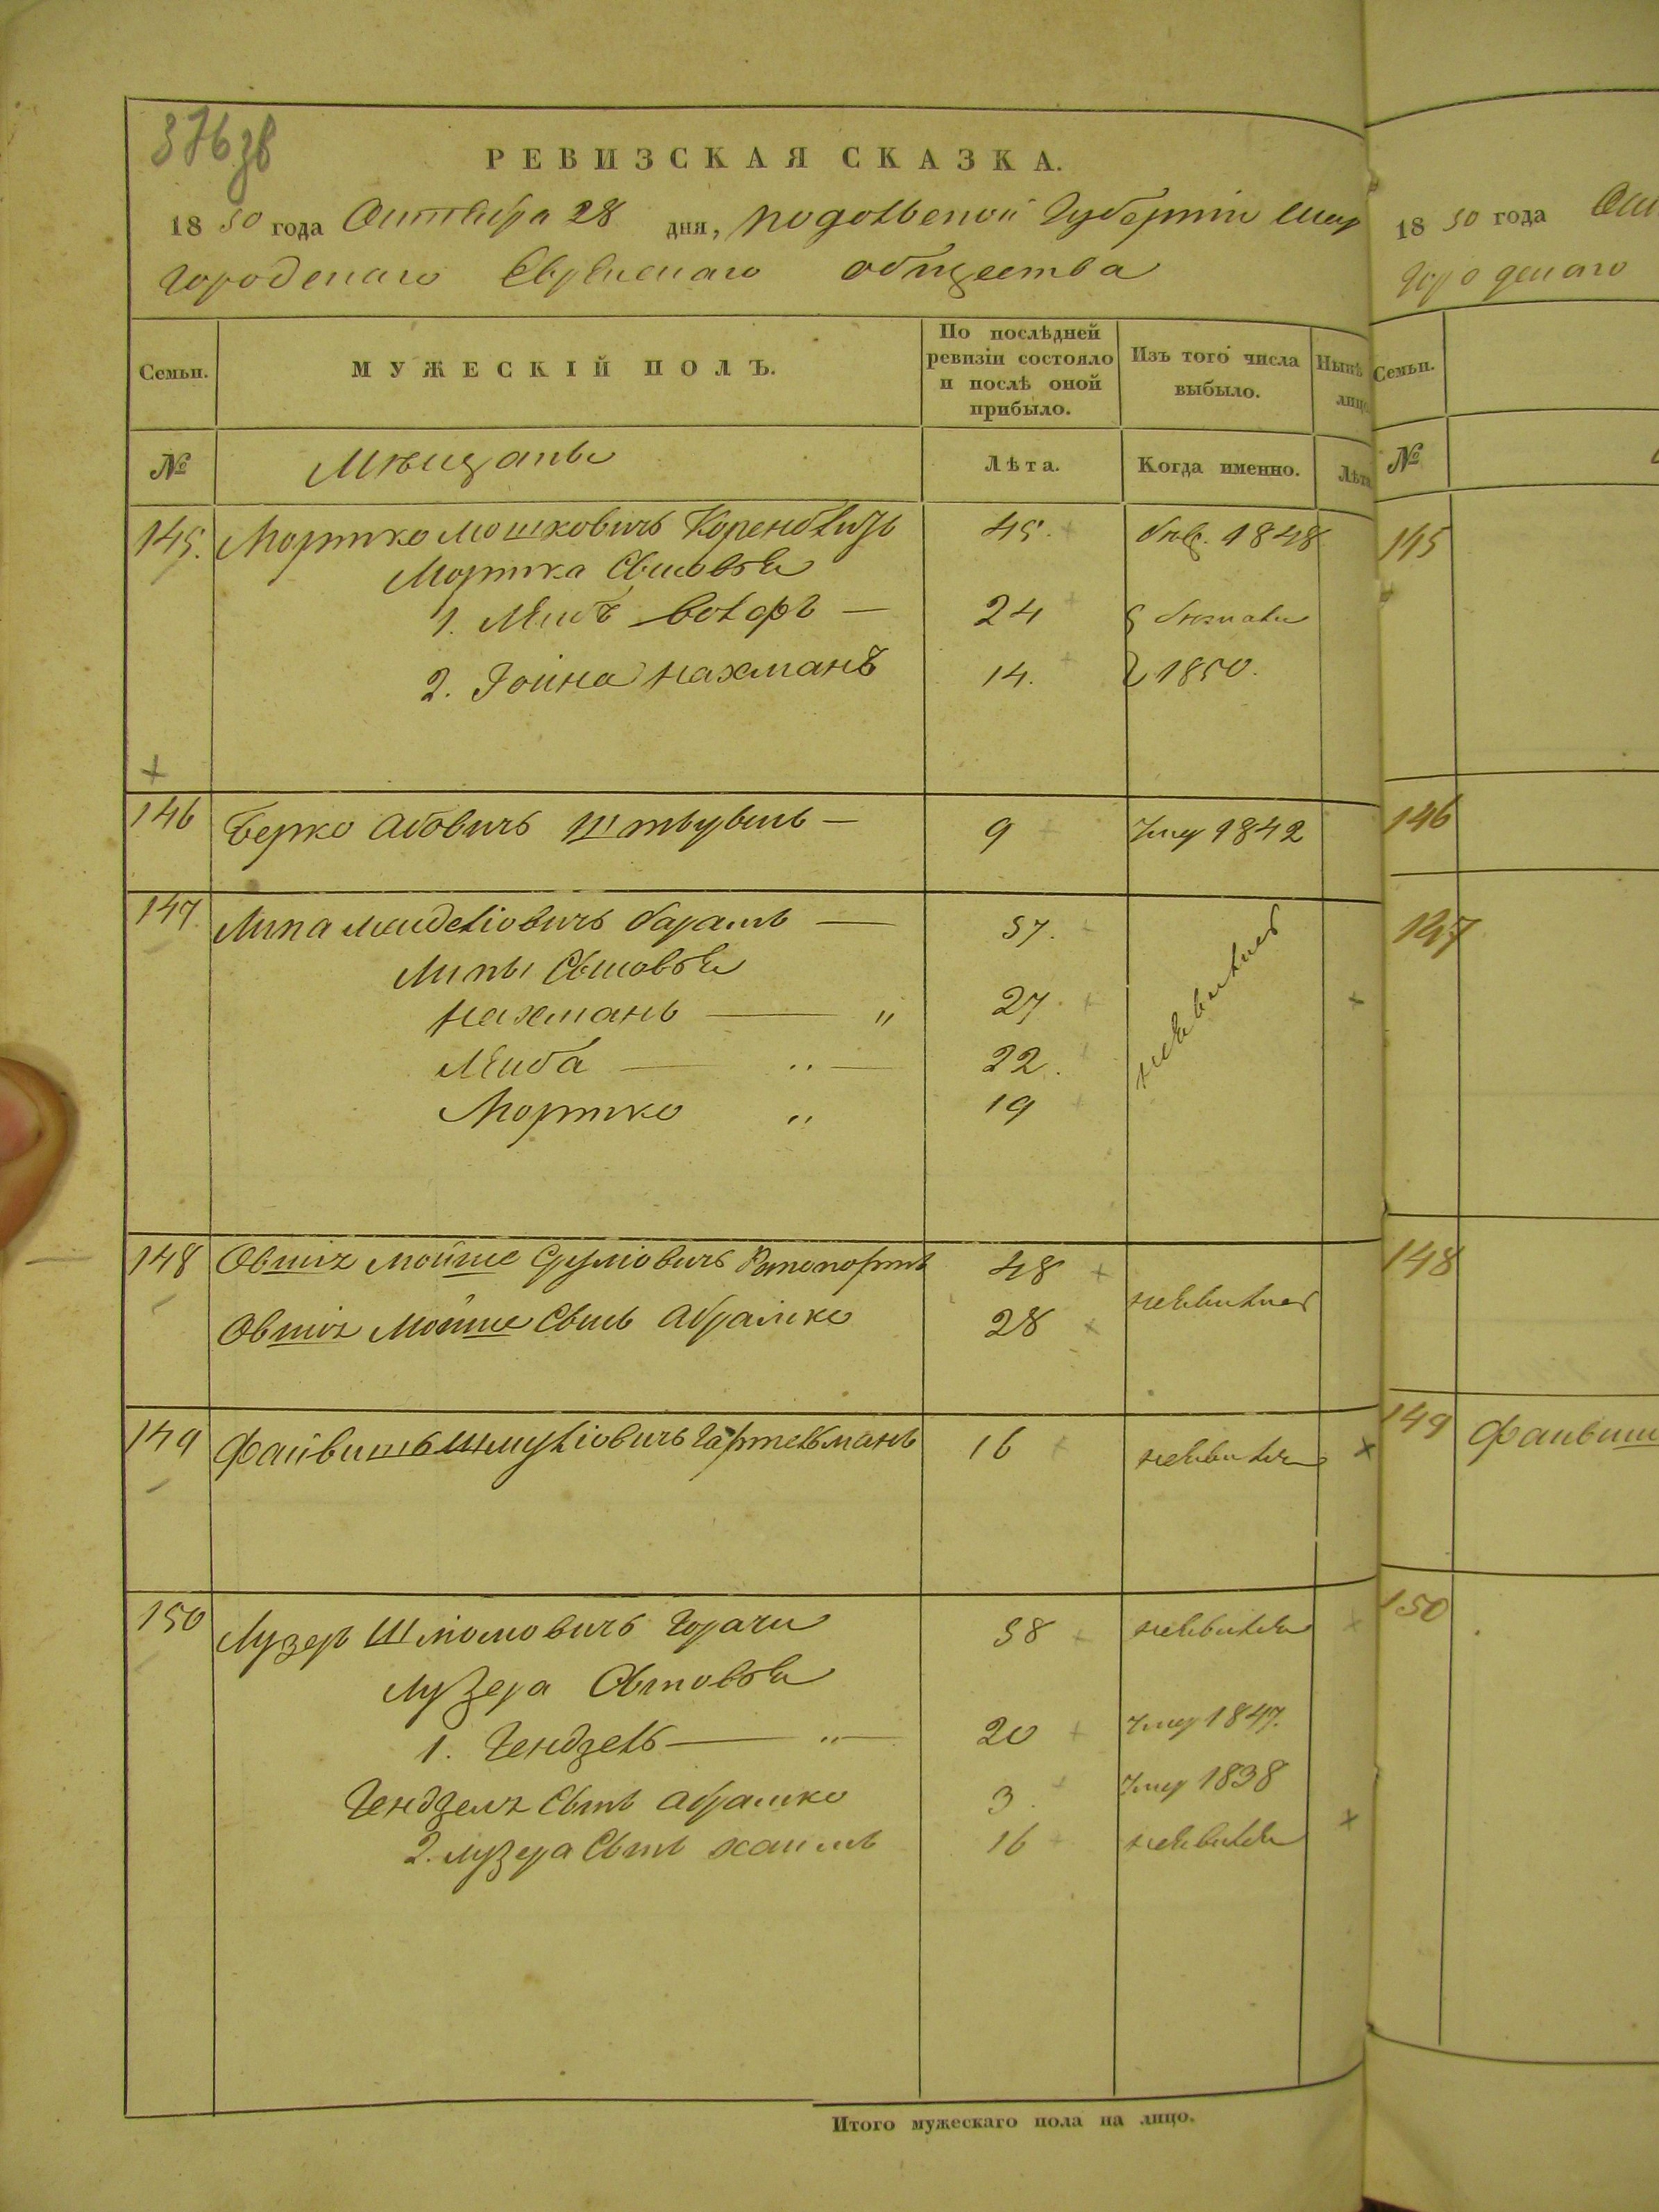 376 зв
РЕВИЗСКАЯ СКАЗКА.
1850 года Октября 28 дня, Подольской Губерніи Шар
городскаго Еврейскаго общества
Семьи.
МУЖЕСКІЙ ПОЛЪ.
По послѣдней ревизіи состояло и послѣ оной прибыло.
Изъ того числа выбыло.
Нынѣ лицо
№
Мѣщане
Лѣта.
Когда именно.
Лѣта
145. Мортко Мошковичъ Коренблитъ 45. 1848
Мортка Сыновья
1. Лейбъ Волфъ — 24
2. Іойна Нахманъ 14. 1850.
146 Берко Абовичъ — 9 Умер 1842
147 Липа Менделіовичъ Барамъ — 57.
Липы Сыновья
Нахманъ — " 27
Лейба — " — 22.
Мортко " 19
148 Овшіх Мойше Сруліовичъ Рапопортъ 48
Овшіх Мойше Сынъ Абрамко 28
149 Файвишъ Шмуліовичъ Гартельманъ 16
150 Лузеръ Шліомовичъ 38
Лузера Сыновья
1. Гендзель — " — 20 Умер 1847.
Гендзеля Сынъ Абрамко 3. Умер 1838
2. Лузера Сынъ Хаимъ 16
Итого мужескаго пола на лицо.
1850 года
городскаго
Семьи.
№
145
146
147
148
149 Файвиш
150